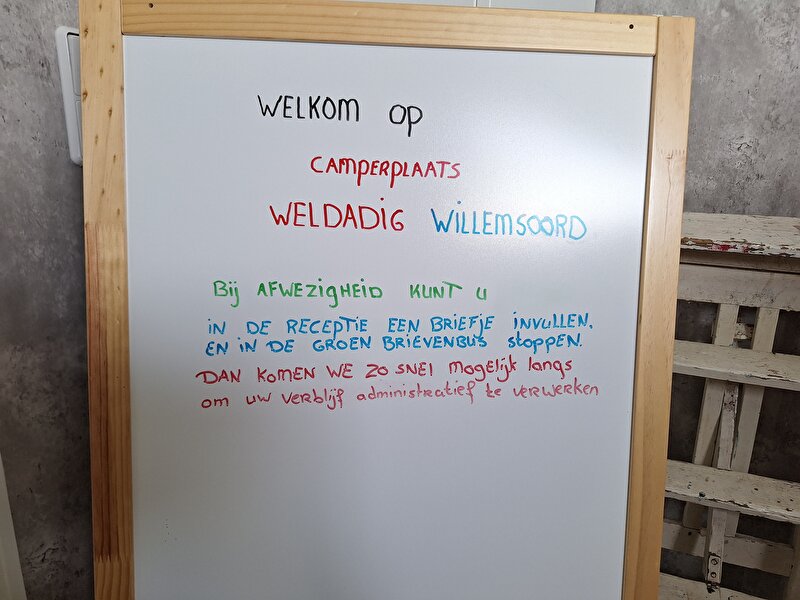 WELKOM OP
CAMPERPLAATS
WELDADIG WILLEMSOORD
Bij AFWEZIGHEID KUNT U
IN DE RECEPTIE EEN BRIEFJE INVULLEN.
EN IN DE GROEN BRIEVENBUS STOPPEN.
DAN KOMEN WE ZO SNEl mogelijk langs
om uw verblijf administratief te verwerken